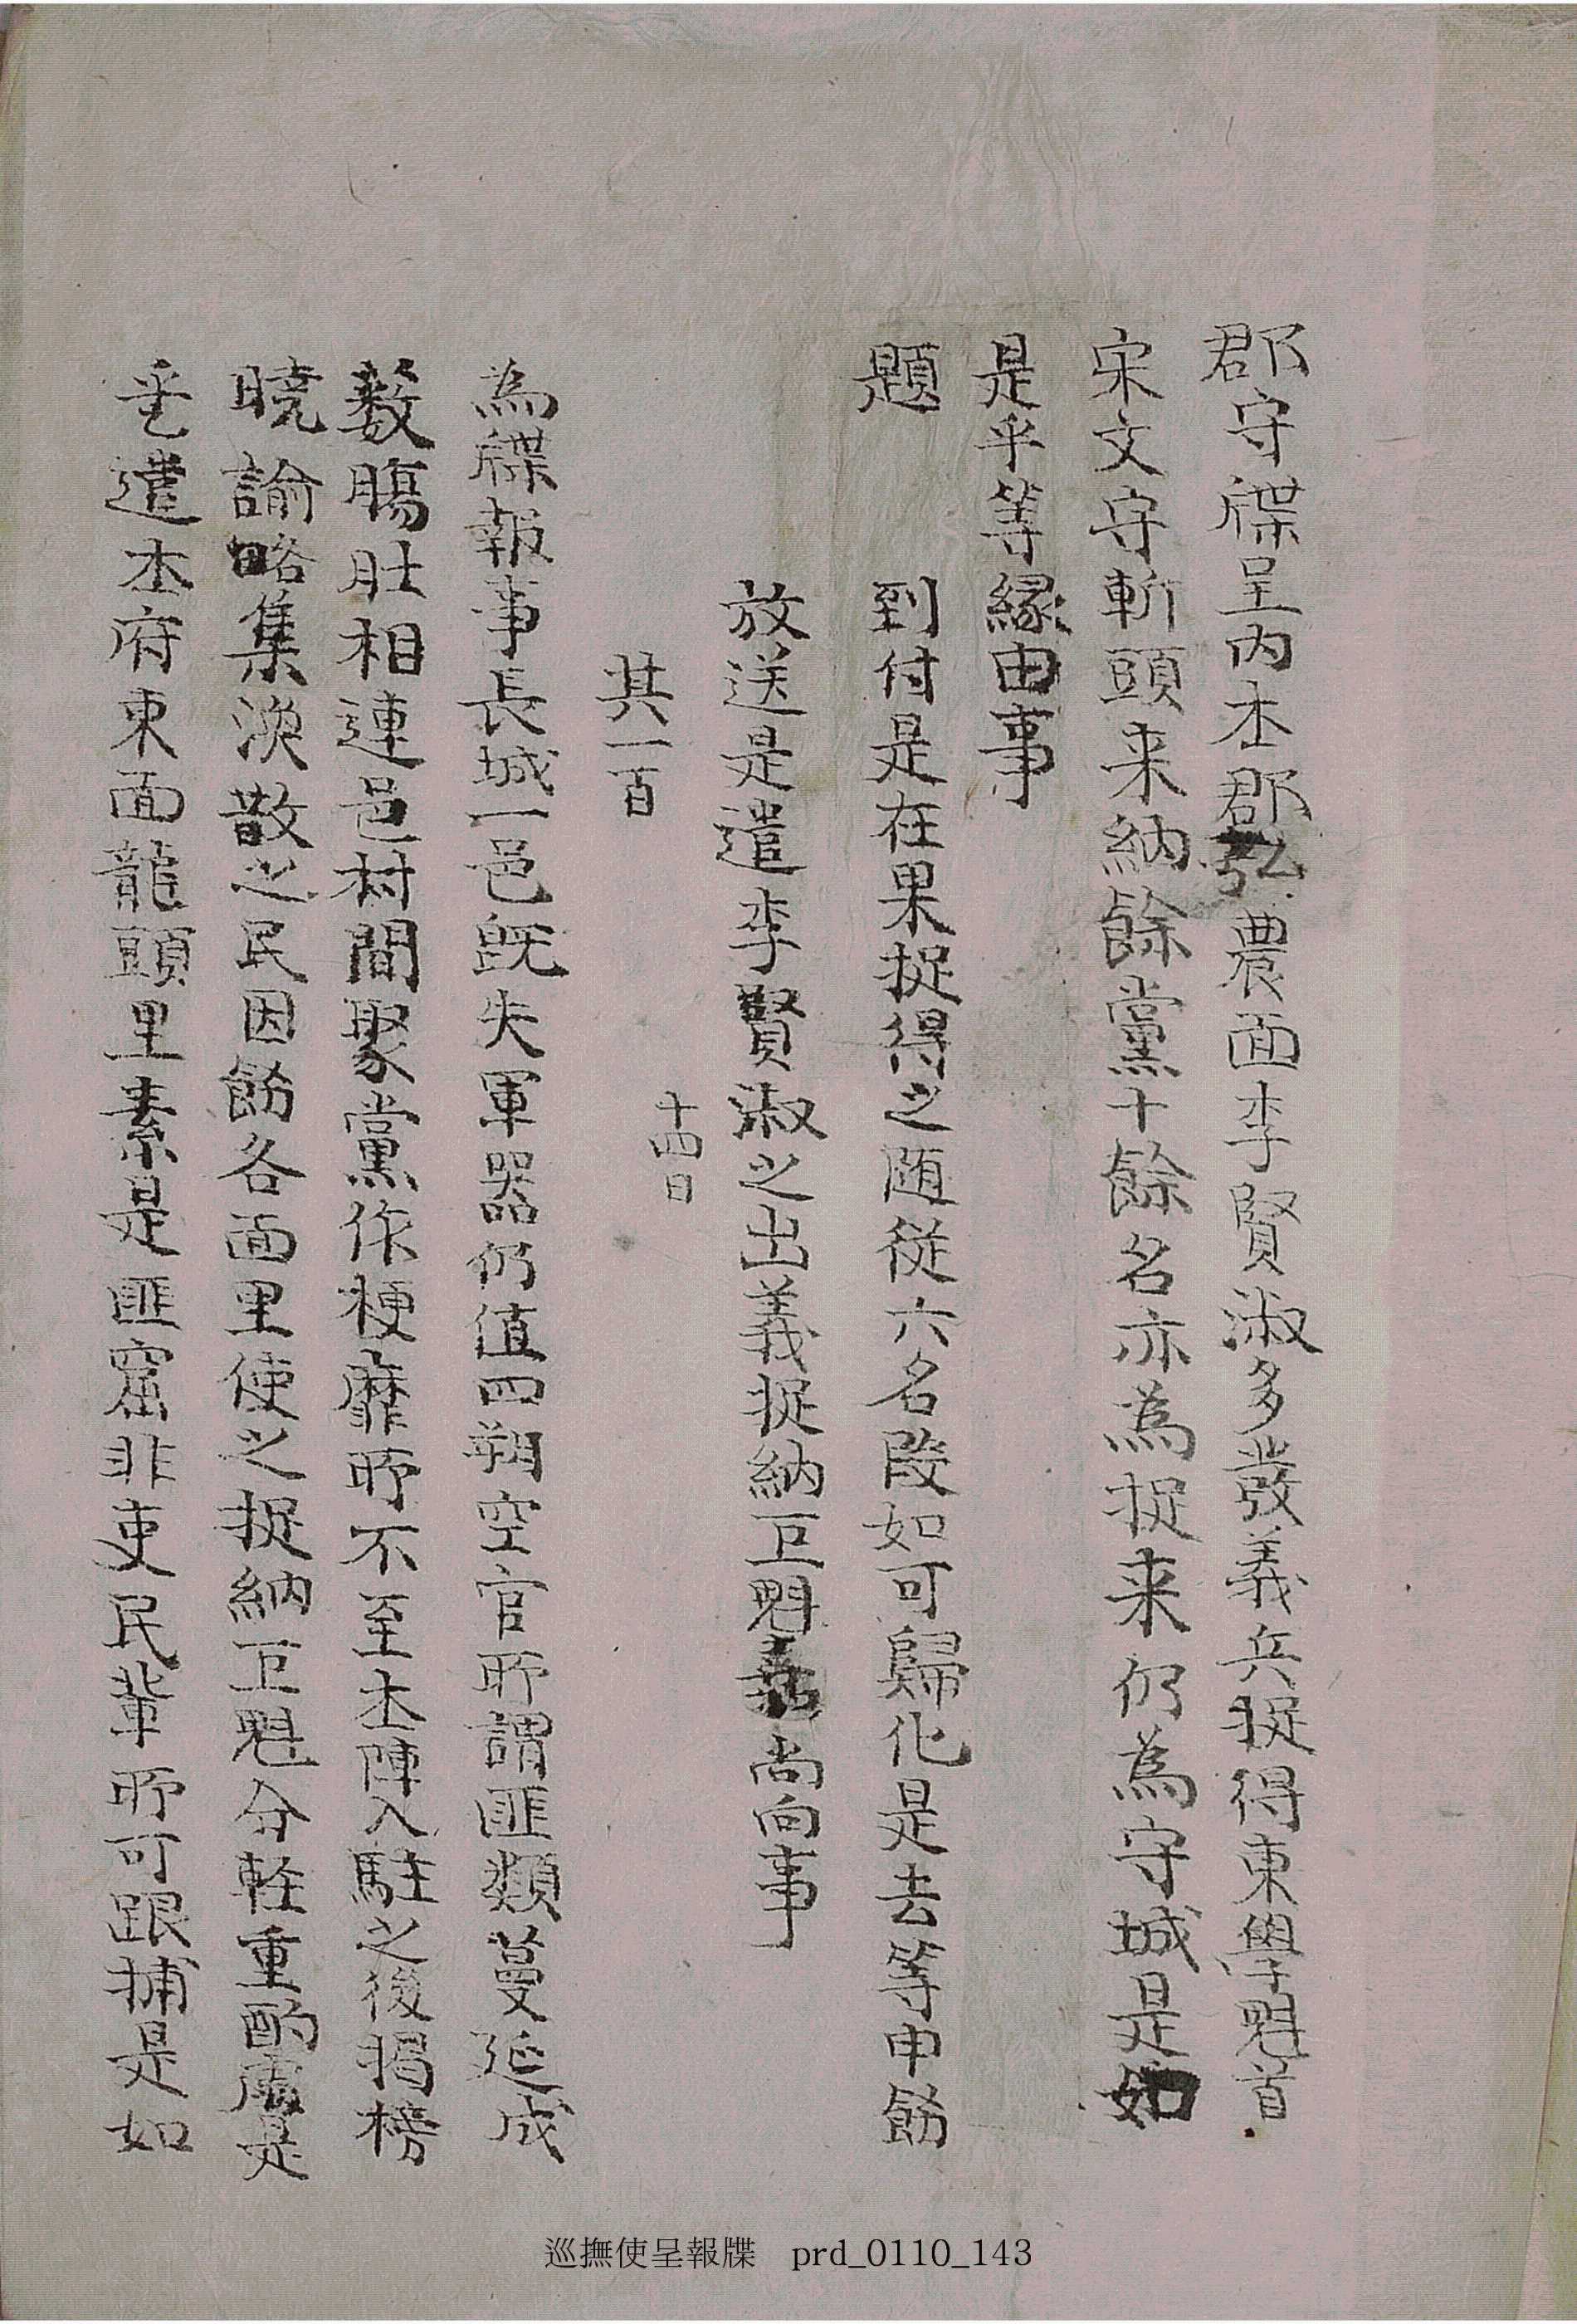 郡守牒呈內本郡弘農面李賢淑多發義兵捉得東學魁首
宋文守斬頭来納餘黨十餘名亦為捉来仍為守城是如
是乎等緣由事
題　到付是在果捉得之随從六名段如可歸化是去等申飭
放送是遣李賢淑之出義捉納巨魁嘉尚向事
其一百
十四日
為牒報事長城一邑旣失軍器仍值四朔空官所謂匪類蔓延成
藪腸肚相連邑村間聚黨作梗靡所不至本陣入駐之後揭榜
曉諭略集渙散之民因飭各面里使之捉納巨魁分輕重酌處是
乎遣本府東面龍頭里素是匪窟非吏民輩所可跟捕是如
巡撫使呈報牒　prd_0110_143